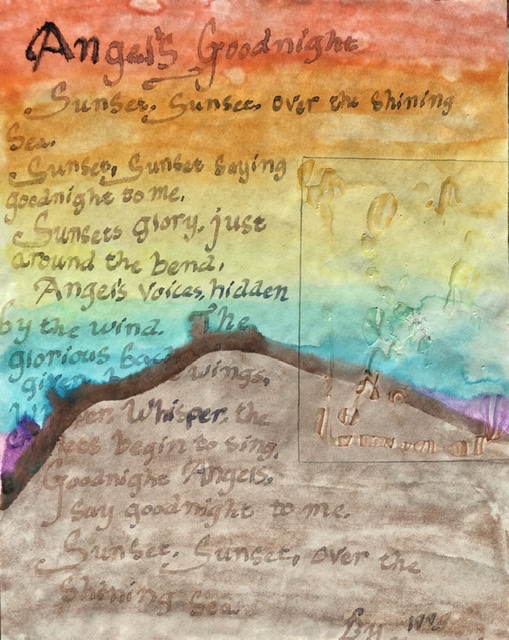 Angel's Goodnight
Sunset, Sunset, over the shining
Sea.
Sunset, Sunset saying
goodnight to me.
Sunsets glory, just
around the bend,
Angel's Voices, hidden
by the wind. The
glorious
given wings,
Whisper, the
begin to sing,
Goodnight Angels,
Say goodnight to me.
Sunset, Sunset, over the
shining Sea